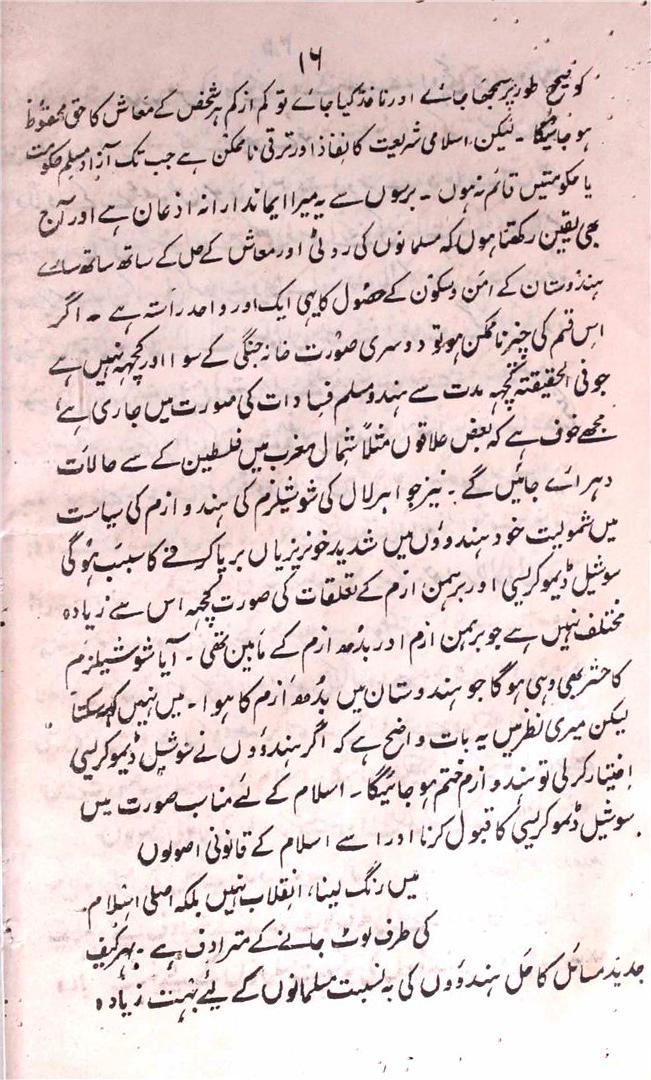 ۱۶
کو صحیح طور پر سمجھا جائے اور نافذ کیا جائے تو کم از کم ہر شخص کے معاش کا حق محفوظ
ہو جائیگا ۔ لیکن اسلامی شریعت کا نفاذ اور ترقی ناممکن ہے جب تک آزاد مسلم حکومت
یا حکومتیں قائم نہ ہوں ۔ برسوں سے یہ میرا ایماندارانہ اذعان ہے اور آج
بھی یقین رکھتا ہوں کہ مسلمانوں کی روٹی اور معاش کے حل کے ساتھ ساتھ سارے
ہندوستان کے امن و سکون کے حصول کا یہی ایک اور واحد راستہ ہے ۔ اگر
اس قسم کی چیز ناممکن ہو تو دوسری صورت خانہ جنگی کے سوا اور کچھ نہیں ہے
جو فی الحقیقتہ کچھہ مدت سے ہندو مسلم فسادات کی صورت میں جاری ہے
مجھے خوف ہے کہ بعض علاقوں مثلاً شمال مغرب میں فلسطین کے سے حالات
دہرائے جائیں گے ۔ نیز جواہر لال کی شوشیلزم کی ہندوازم کی سیاست
میں شمولیت خود ہندوؤں میں شدید خونریزیاں برپا کرنے کا سبب ہوگی
سوشیل ڈیموکریسی اور برہمن ازم کے تعلقات کی صورت کچھہ اس سے زیادہ
مختلف نہیں ہے جو برہمن ازم اور بدھ ازم کے مابین تھی ۔ آیا شوشیلزم
کا حشر بھی وہی ہوگا جو ہندوستان میں بدھ ازم کا ہوا ۔ میں نہیں کہہ سکتا
لیکن میری نظر میں یہ بات واضح ہے کہ اگر ہندوؤں نے سوشیل ڈیموکریسی
اختیار کرلی تو ہندوازم ختم ہو جائیگا ۔ اسلام کے لئے مناسب صورت میں
سوشیل ڈیموکریسی کا قبول کرنا اور اسے اسلام کے قانونی اصولوں
میں رنگ لینا، انقلاب نہیں بلکہ اصلی اسلام
کی طرف لوٹ جانے کے مترادف ہے ۔ بہر کیف
جدید مسائل کا حل ہندوؤں کی بہ نسبت مسلمانوں کے لیے بہت زیادہ